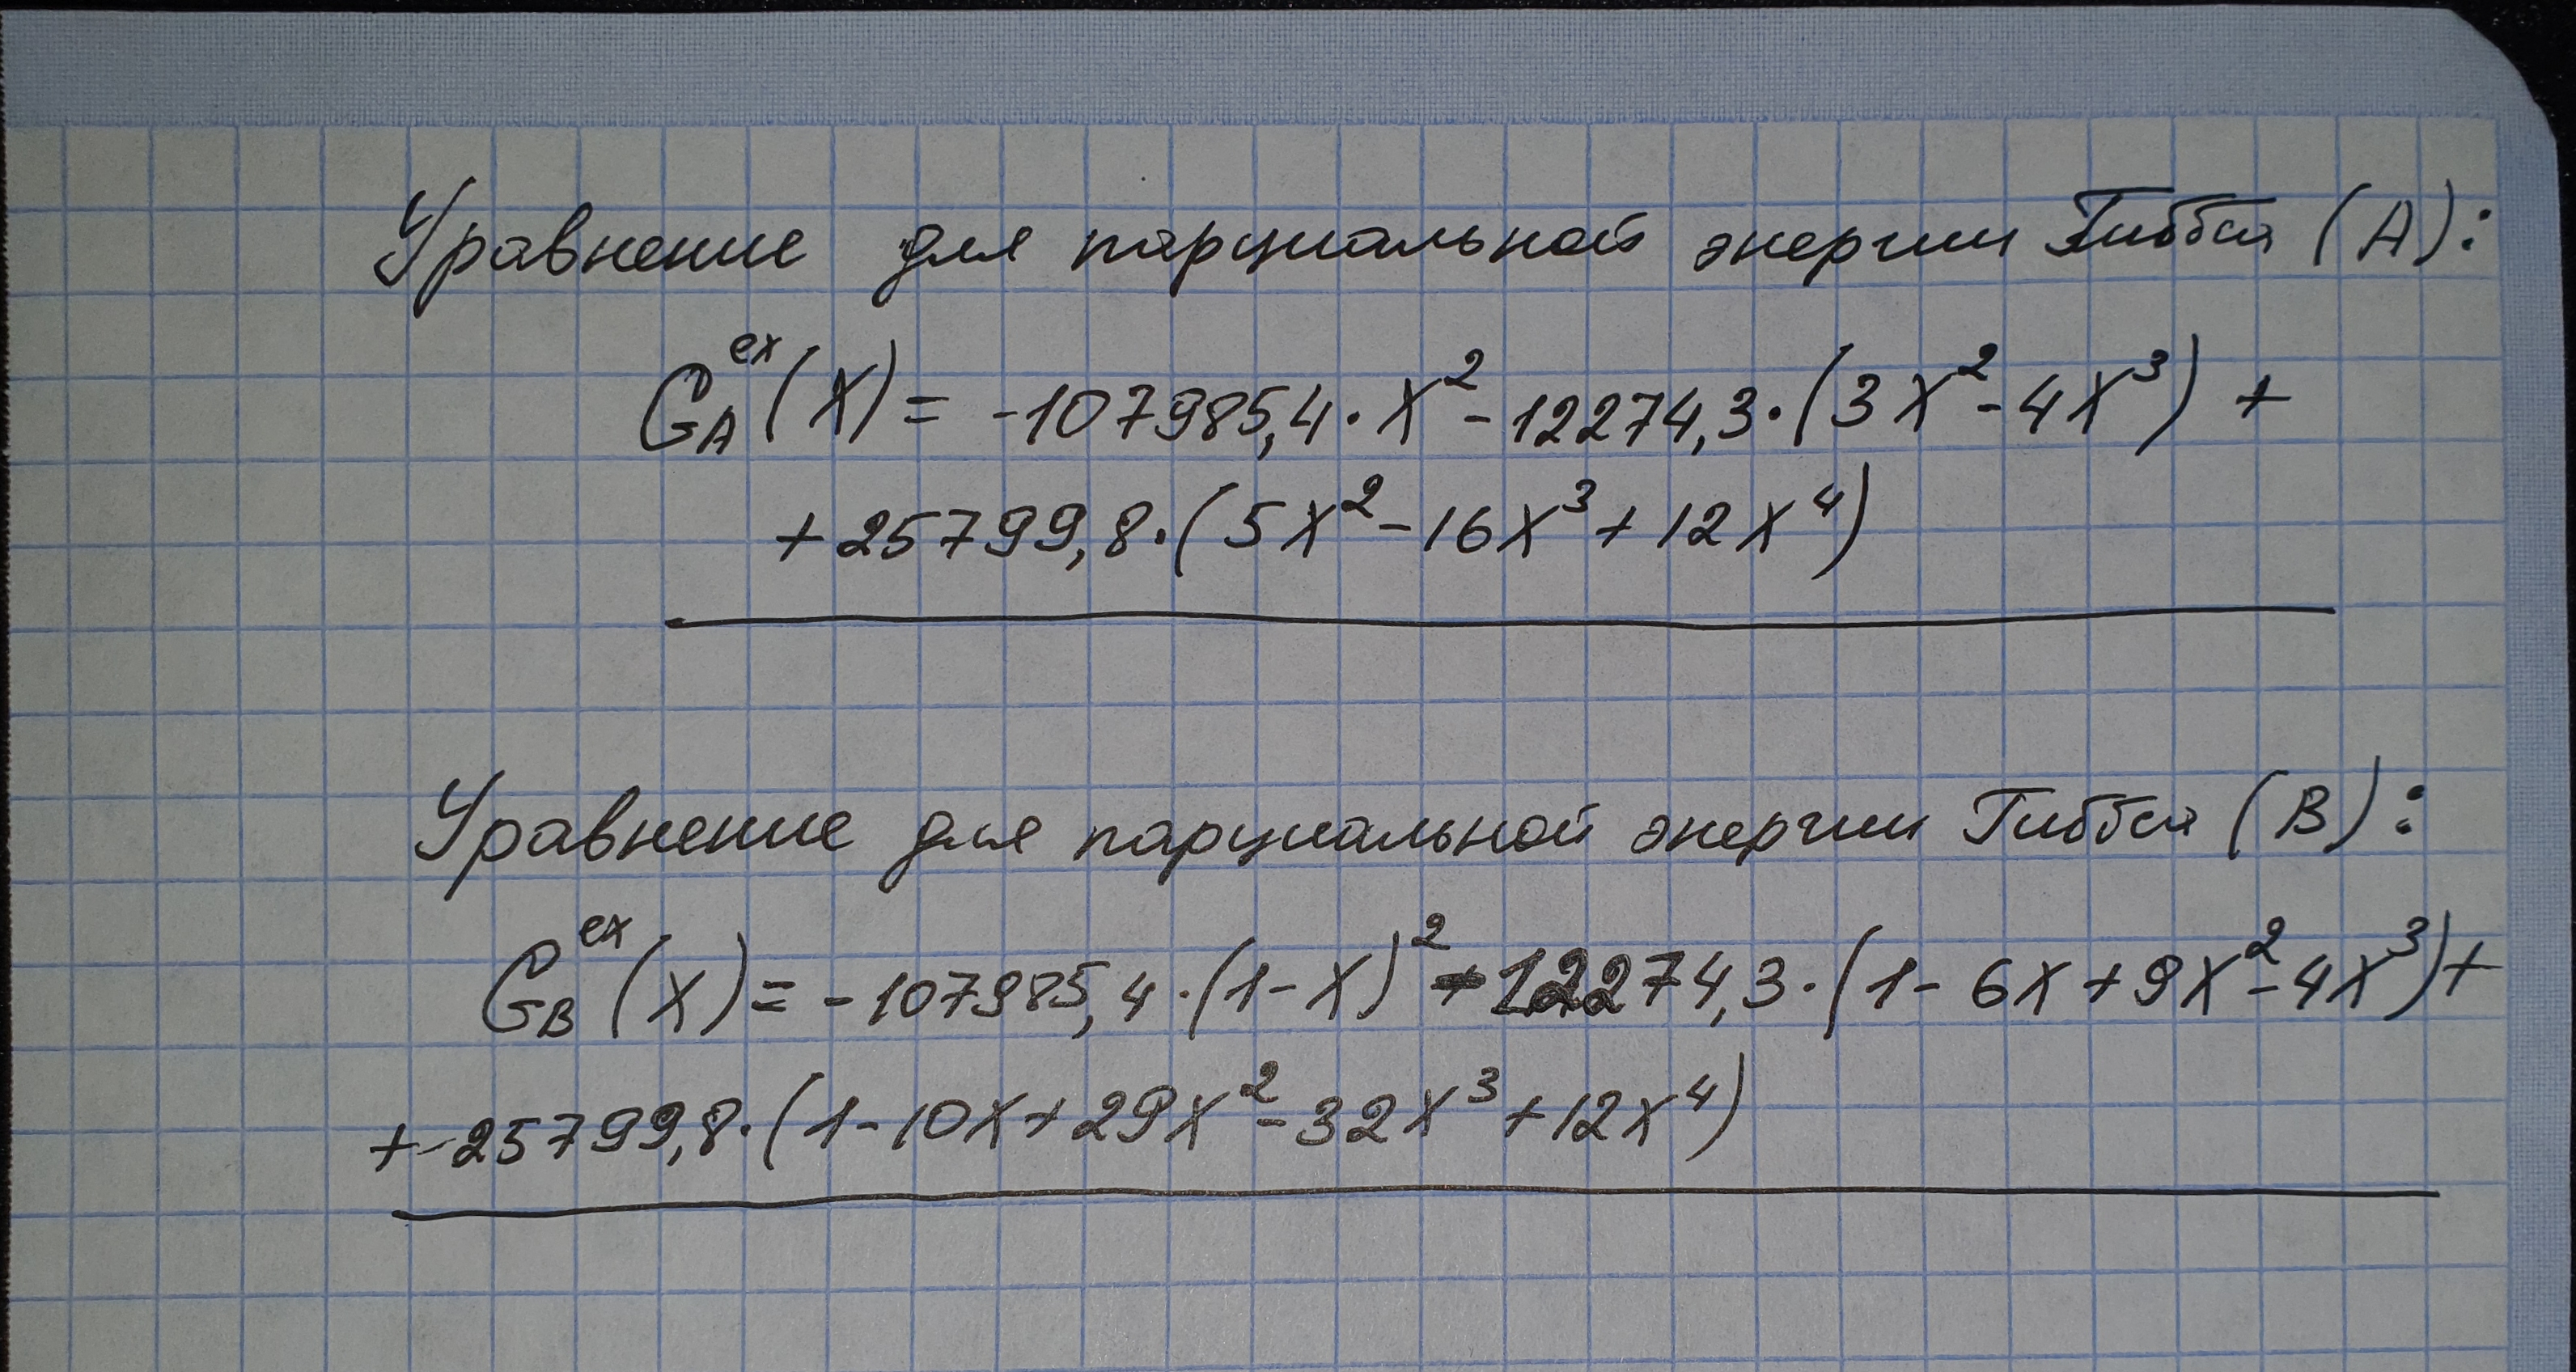 Уравнение для парциальной энергии Гиббса (A):
G_A^ex(X) = -107985,4·X² - 12274,3·(3X² - 4X³) +
+ 25799,8·(5X² - 16X³ + 12X⁴)
Уравнение для парциальной энергии Гиббса (B):
G_B^ex(X) = -107985,4·(1-X)² - 12274,3·(1 - 6X + 9X² - 4X³) +
+ 25799,8·(1 - 10X + 29X² - 32X³ + 12X⁴)